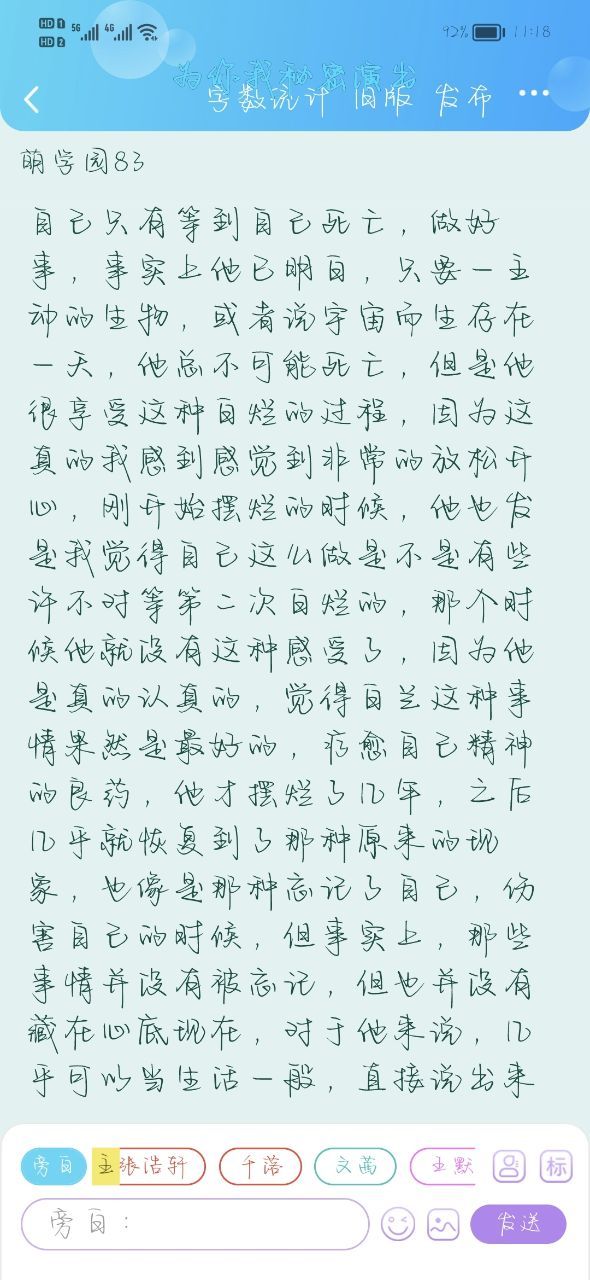 HD 1 5G 4G 92% 11:18
HD 2
为你我秘密演出
字数统计 旧版 发布 ...
萌学园83
自己只有等到自己死亡，做好
事，事实上他已明白，只要一主
神的生物，或者说宇宙而生存在
一天，他总不可能死亡，但是他
很享受这种白烂的过程，因为这
真的我感到感觉到非常的放松开
心，刚开始摆烂的时候，他也发
是我觉得自己这么做是不是有些
许不对等第二次白烂的，那个时
候他就没有这种感受了，因为他
是真的认真的，觉得白兰这种事
情果然是最好的，疗愈自己精神
的良药，他才摆烂了几年，之后
几乎就恢复到了那种原来的现
象，也像是那种忘记了自己，伤
害自己的时候，但事实上，那些
事情并没有被忘记，但也并没有
藏在心底现在，对于他来说，几
乎可以当生活一般，直接说出来
旁白 主张浩轩 千落 文茜 王默 标
旁白： 发送